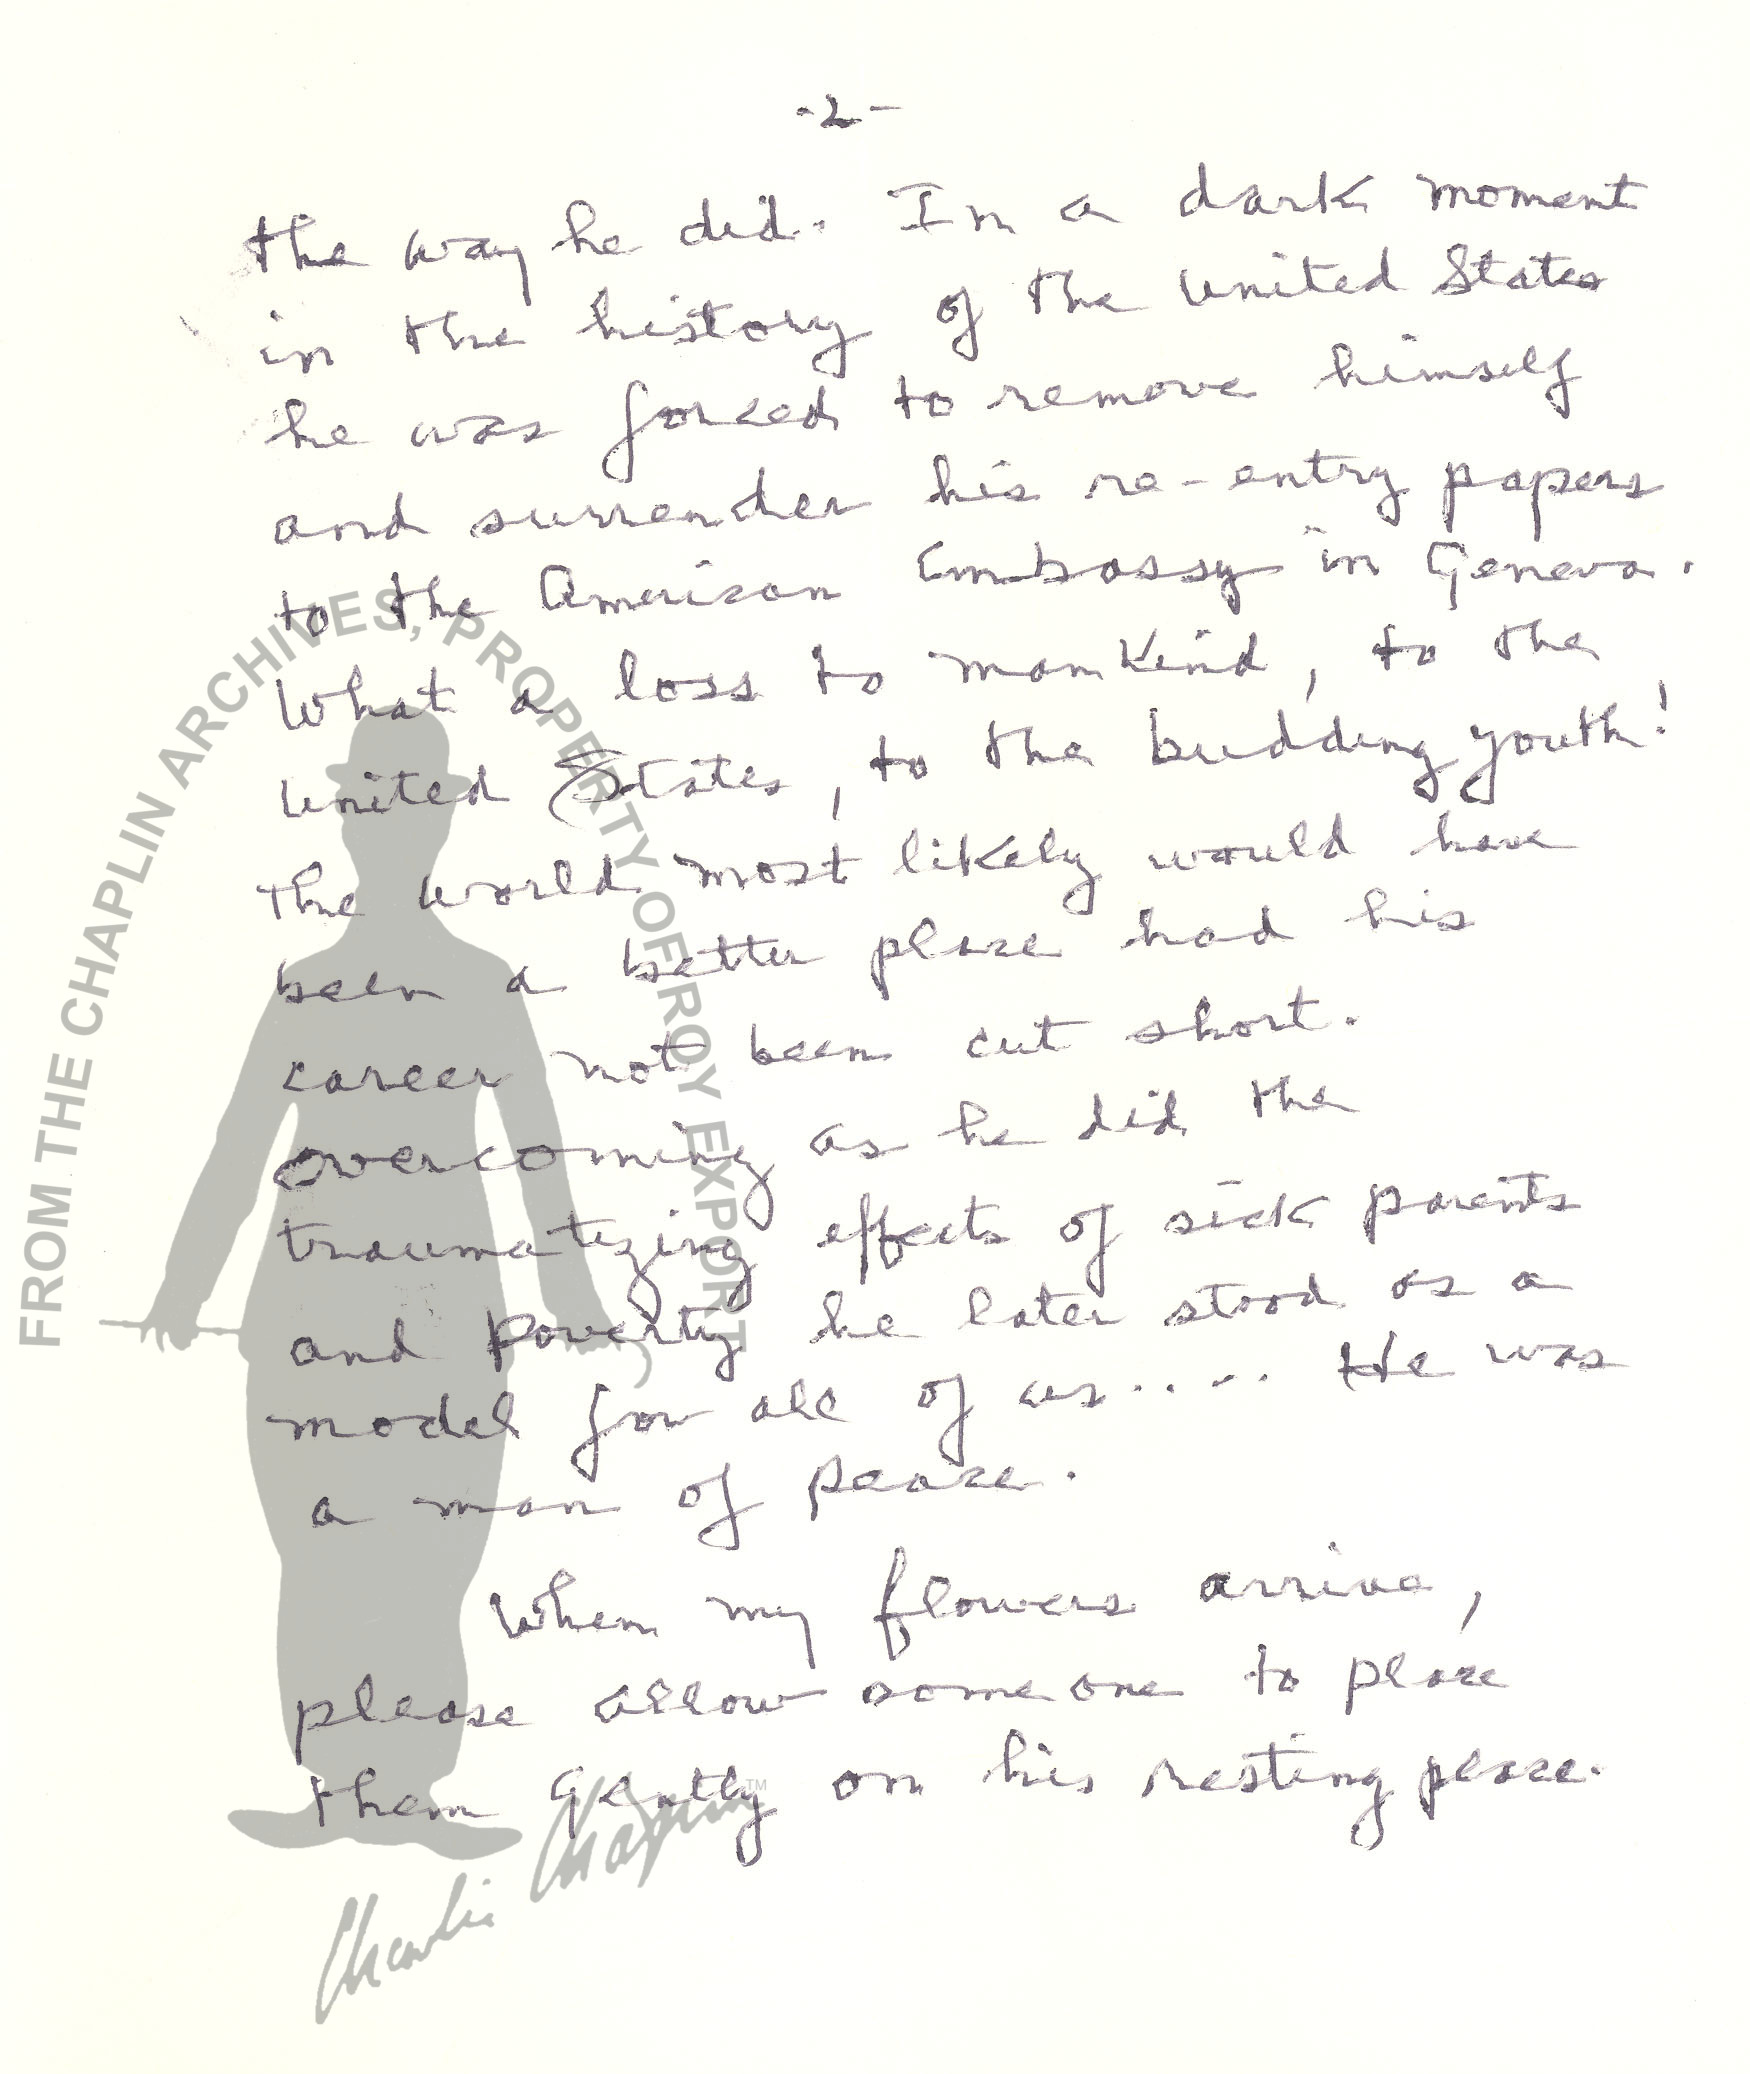 -2-
the way he did. In a dark moment
in the history of the United States
he was forced to remove himself
and surrender his re-entry papers
to the American Embassy in Geneva.
What a loss to mankind, to the
United States, to the budding youth!
The world most likely would have
been a better place had his
career not been cut short.
Overcoming as he did the
traumatizing effects of sick parents
and poverty he later stood as a
model for all of us..... He was
a man of peace.
When my flowers arrive,
please allow someone to place
them gently on his resting place.
FROM THE CHAPLIN ARCHIVES, PROPERTY OF ROY EXPORT
Charlie Chaplin™